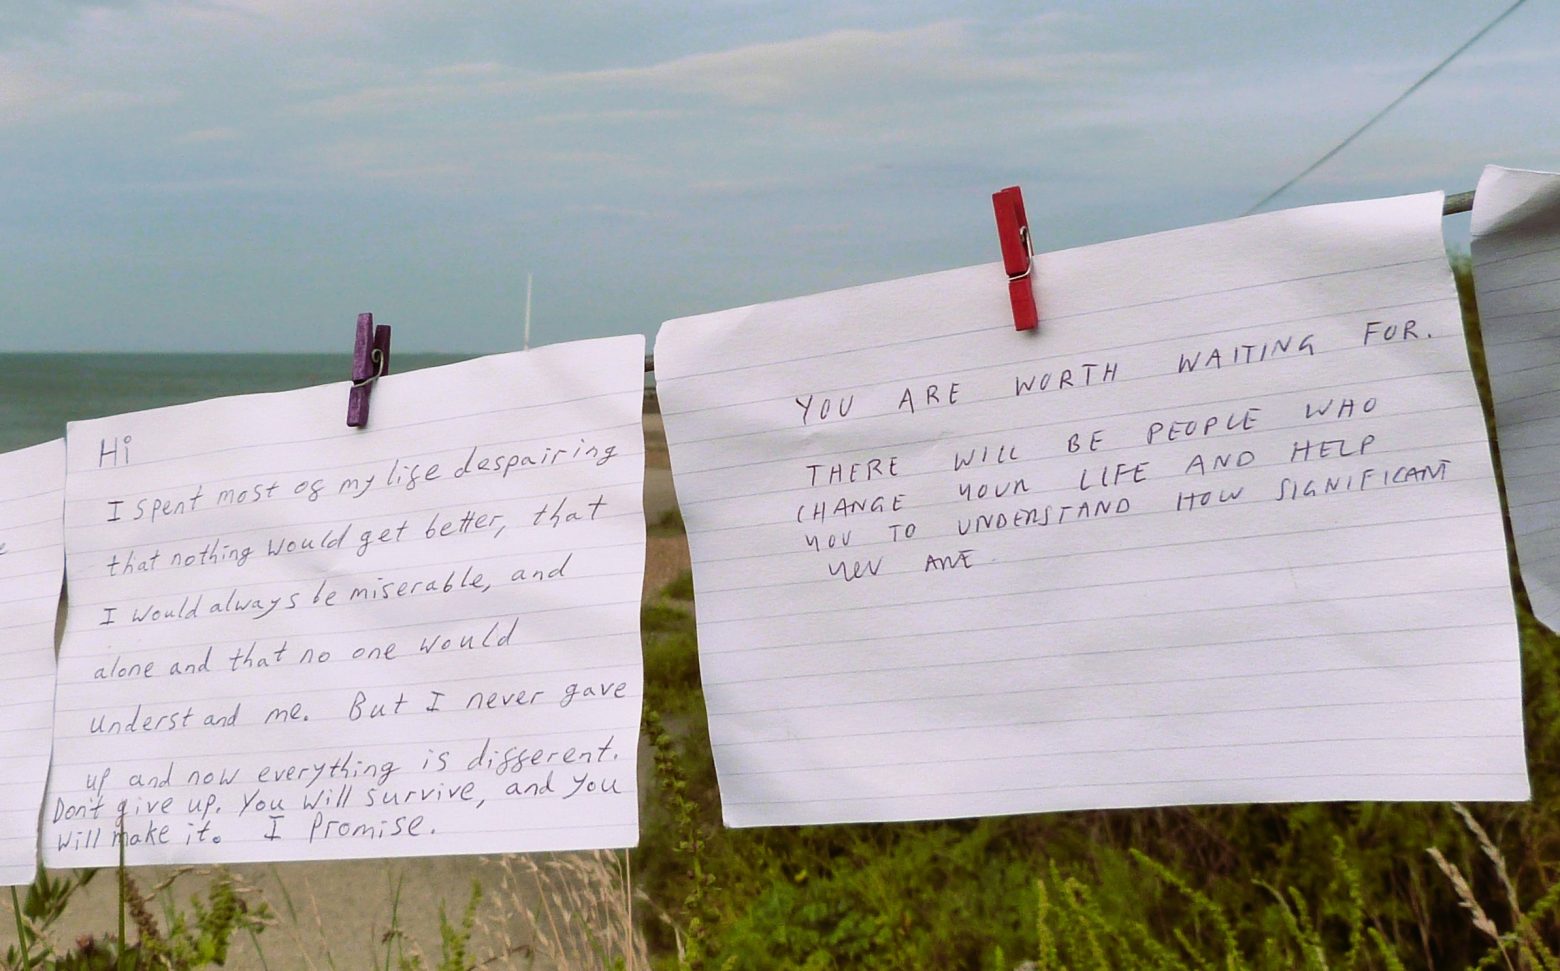 Hi
I spent most of my life despairing
that nothing would get better, that
I would always be miserable, and
alone and that no one would
understand me. But I never gave
up and now everything is different.
Don't give up. You will survive, and you
will make it. I promise.
YOU ARE WORTH WAITING FOR.
THERE WILL BE PEOPLE WHO
CHANGE YOUR LIFE AND HELP
YOU TO UNDERSTAND HOW SIGNIFICANT
YOU ARE